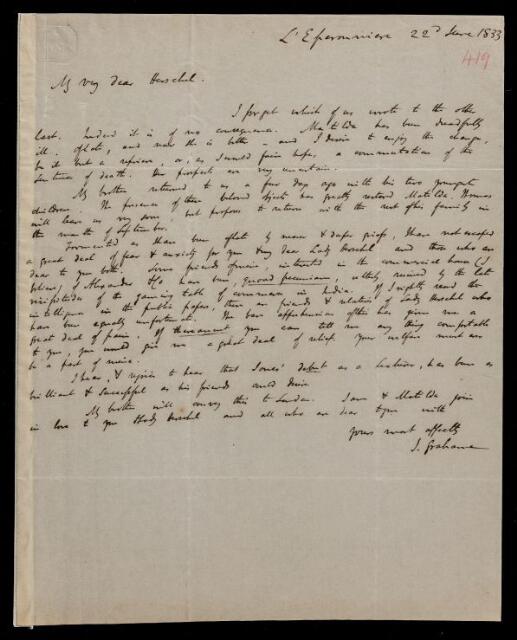 L'Eparonniere 22d June 1833
419
My very dear Herschel.
I forget which of us wrote to the other
last. Indeed it is of no consequence. Matilda has been dreadfully
ill of late, and now she is better – and I desire to enjoy the change,
be it but a reprieve, or, as I would fain hope, a commutation of the
sentence of death. Our prospects are very uncertain.
My brother returned to us a few days ago with his two youngest
children. The presence of these beloved objects has greatly restored Matilda. Thomas
will leave us very soon, but proposes to return with the rest of his family in
the month of September.
Tormented as I have been of late by more & deeper griefs, I have not escaped
a great deal of fear & anxiety for you & my dear Lady Herschel and those who are
dear to you both. Some friends of mine, interested in the commercial house (I
believe) of Alexander & Co. have been, quoad pecuniam, utterly ruined by the late
vicissitudes of the gaming table of commerce in India. If I rightly read the
intelligence in the public papers, there are friends & relatives of Lady Herschel who
have been equally unfortunate. The bare apprehension of this has given me a
great deal of pain. If you can tell me any thing comfortable
to you, you would give me a great deal of relief. Your welfare must ever
be a part of mine.
I hear, & rejoice to hear that Jones' debut as a Lecturer, has been as
brilliant & successful as his friends could desire.
My brother will convey this to London. Jane & Matilda join
in love to you & Lady Herschel and all who are dear to you with
yours most affectly
J. Grahame